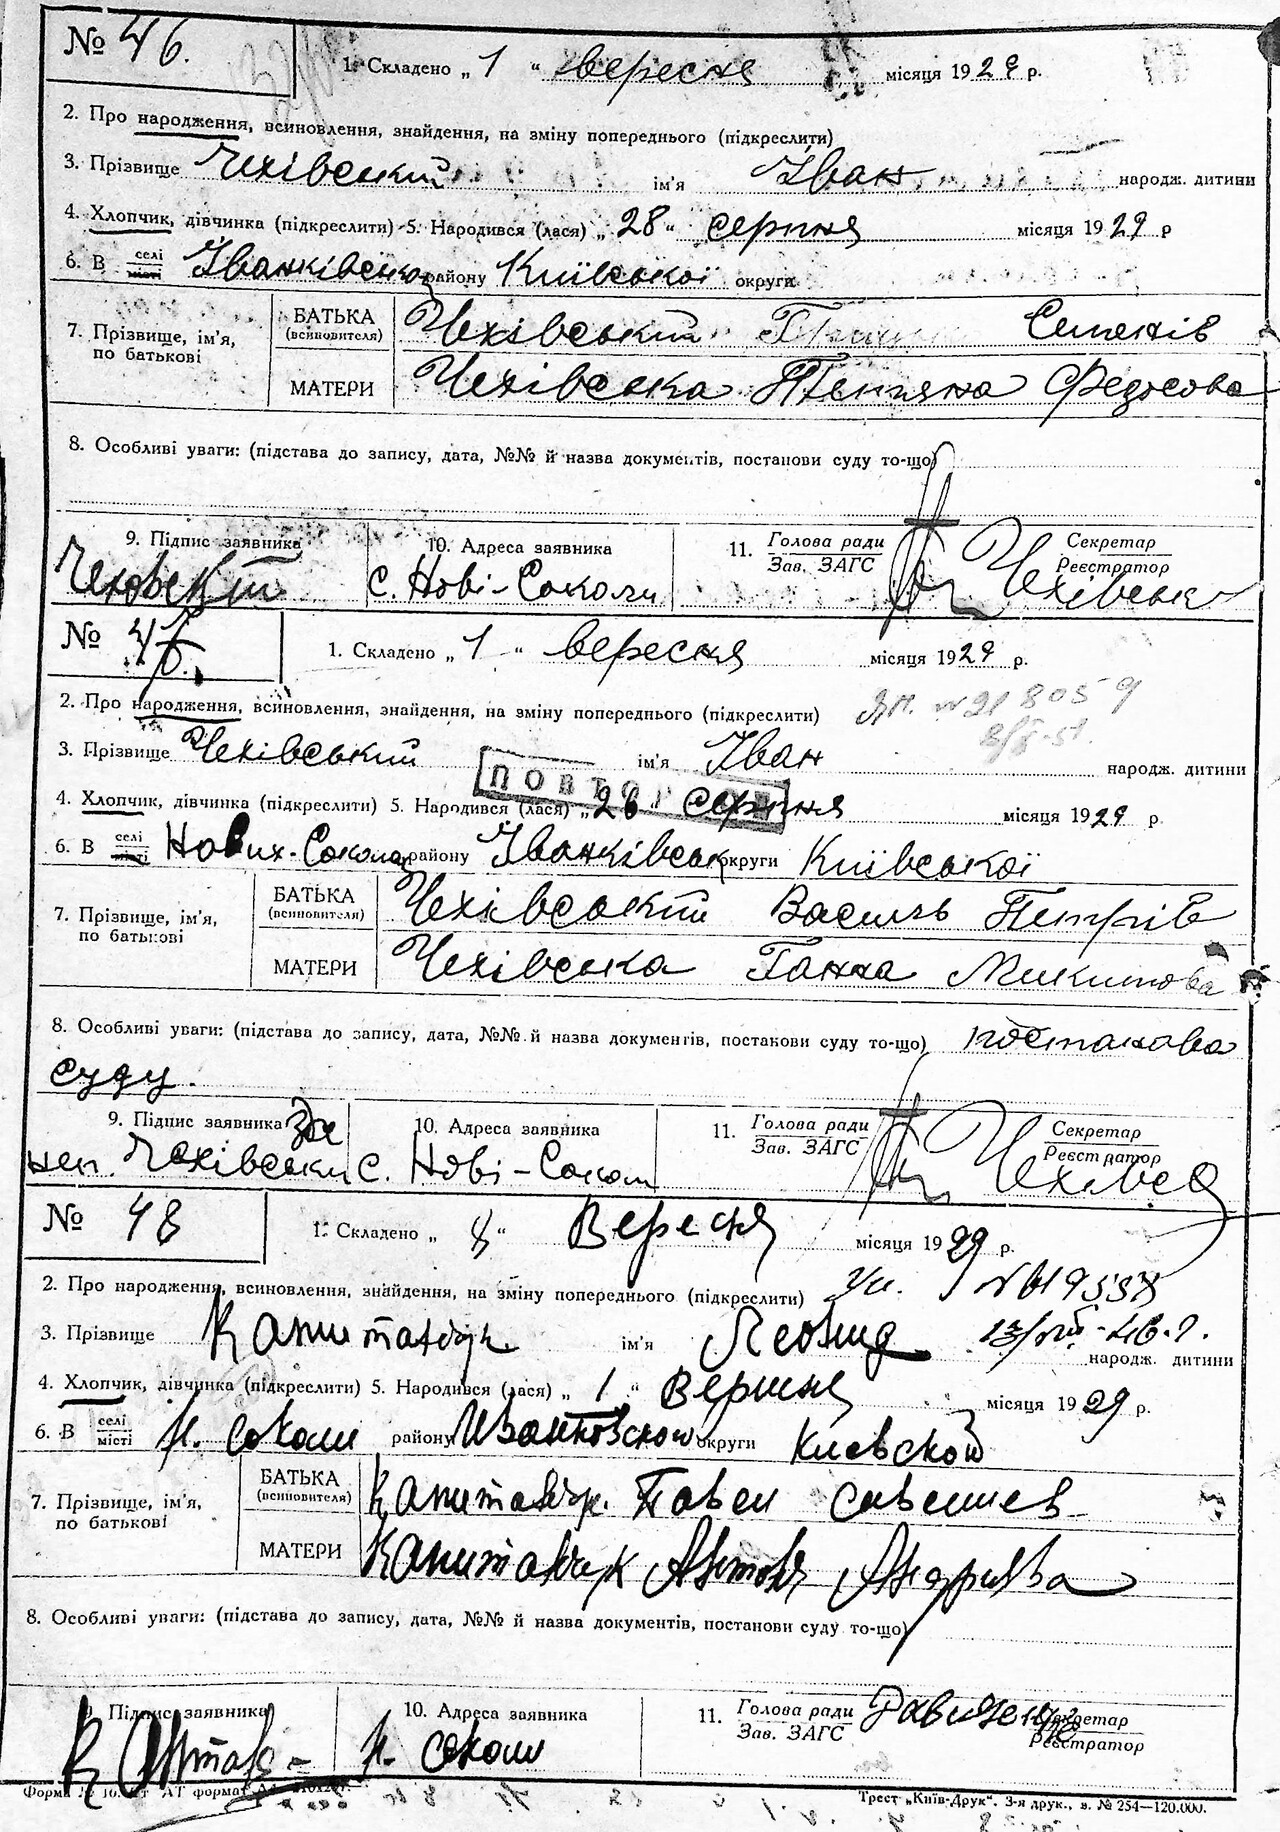 № 46.
1. Складено „ 1 “ вересня місяця 1929 р.
2. Про народження, всиновлення, знайдення, на зміну попереднього (підкреслити)
3. Прізвище Чехівський ім'я Іван народж. дитини
4. Хлопчик, дівчинка (підкреслити) 5. Народився (лася) „ 28 “ серпня місяця 1929 р
6. В селі місті Іванківського району Київської округи
7. Прізвище, ім'я, по батькові
БАТЬКА (всиновителя) Чехівський Семенів
МАТЕРИ Чехівська Тетяна Федосова
8. Особливі уваги: (підстава до запису, дата, №№ й назва документів, постанови суду то-що)
9. Підпис заявника 10. Адреса заявника 11. Голова ради Зав. ЗАГС Секретар Реєстратор
Чеховский с. Нові-Соколи Чехівськ
№
1. Складено „ 1 “ вересня місяця 1929 р.
2. Про народження, всиновлення, знайдення, на зміну попереднього (підкреслити)
3. Прізвище Чехівський ім'я Іван народж. дитини
4. Хлопчик, дівчинка (підкреслити) 5. Народився (лася) „ 26 “ серпня місяця 1929 р.
6. В селі місті Нових-Соколах району Іванківськ округи Київської
7. Прізвище, ім'я, по батькові
БАТЬКА (всиновителя) Чехівський Василь Петрів
МАТЕРИ Чехівська Ганна Микитова
8. Особливі уваги: (підстава до запису, дата, №№ й назва документів, постанови суду то-що) постанова
суду.
9. Підпис заявника За 10. Адреса заявника 11. Голова ради Зав. ЗАГС Секретар Реєстратор
неп. Чехівський с. Нові-Соколи
№ 48
1. Складено „ 8 “ Вересня місяця 1929 р.
2. Про народження, всиновлення, знайдення, на зміну попереднього (підкреслити)
3. Прізвище Капитанчук ім'я Леонид народж. дитини
4. Хлопчик, дівчинка (підкреслити) 5. Народився (лася) „ 1 “ Вересня місяця 1929 р.
6. В селі місті Н. Соколи району округи Киевской
7. Прізвище, ім'я, по батькові
БАТЬКА (всиновителя) Капитанчук Павел
МАТЕРИ Капитанчук
8. Особливі уваги: (підстава до запису, дата, №№ й назва документів, постанови суду то-що)
9. Підпис заявника 10. Адреса заявника 11. Голова ради Зав. ЗАГС Секретар Реєстратор
Н. Соколи
Трест „Київ-Друк“. 3-я друк., в. № 254—120.000.